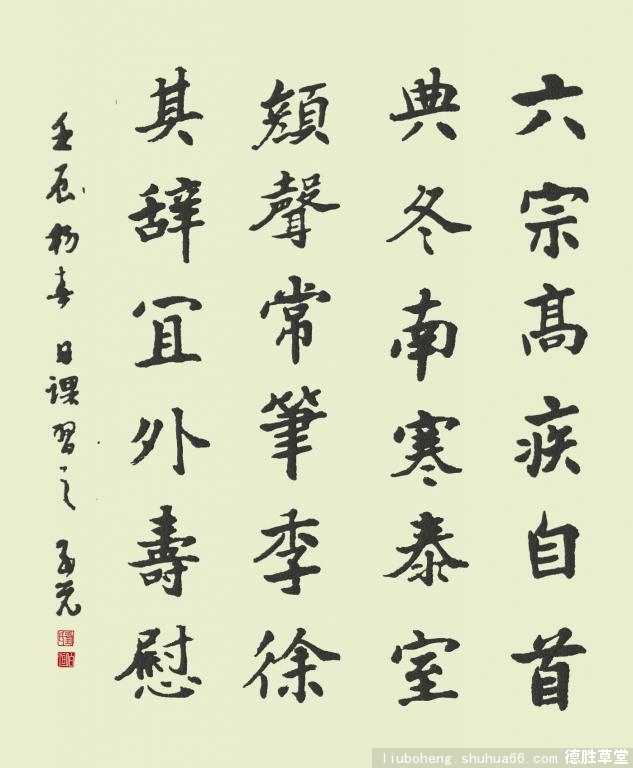 六宗髙疾自首
典冬南寒泰室
顔聲常筆季徐
其辞冝外壽慰
壬辰初春 日課習之
liuboheng.shuhua66.com 德胜草堂